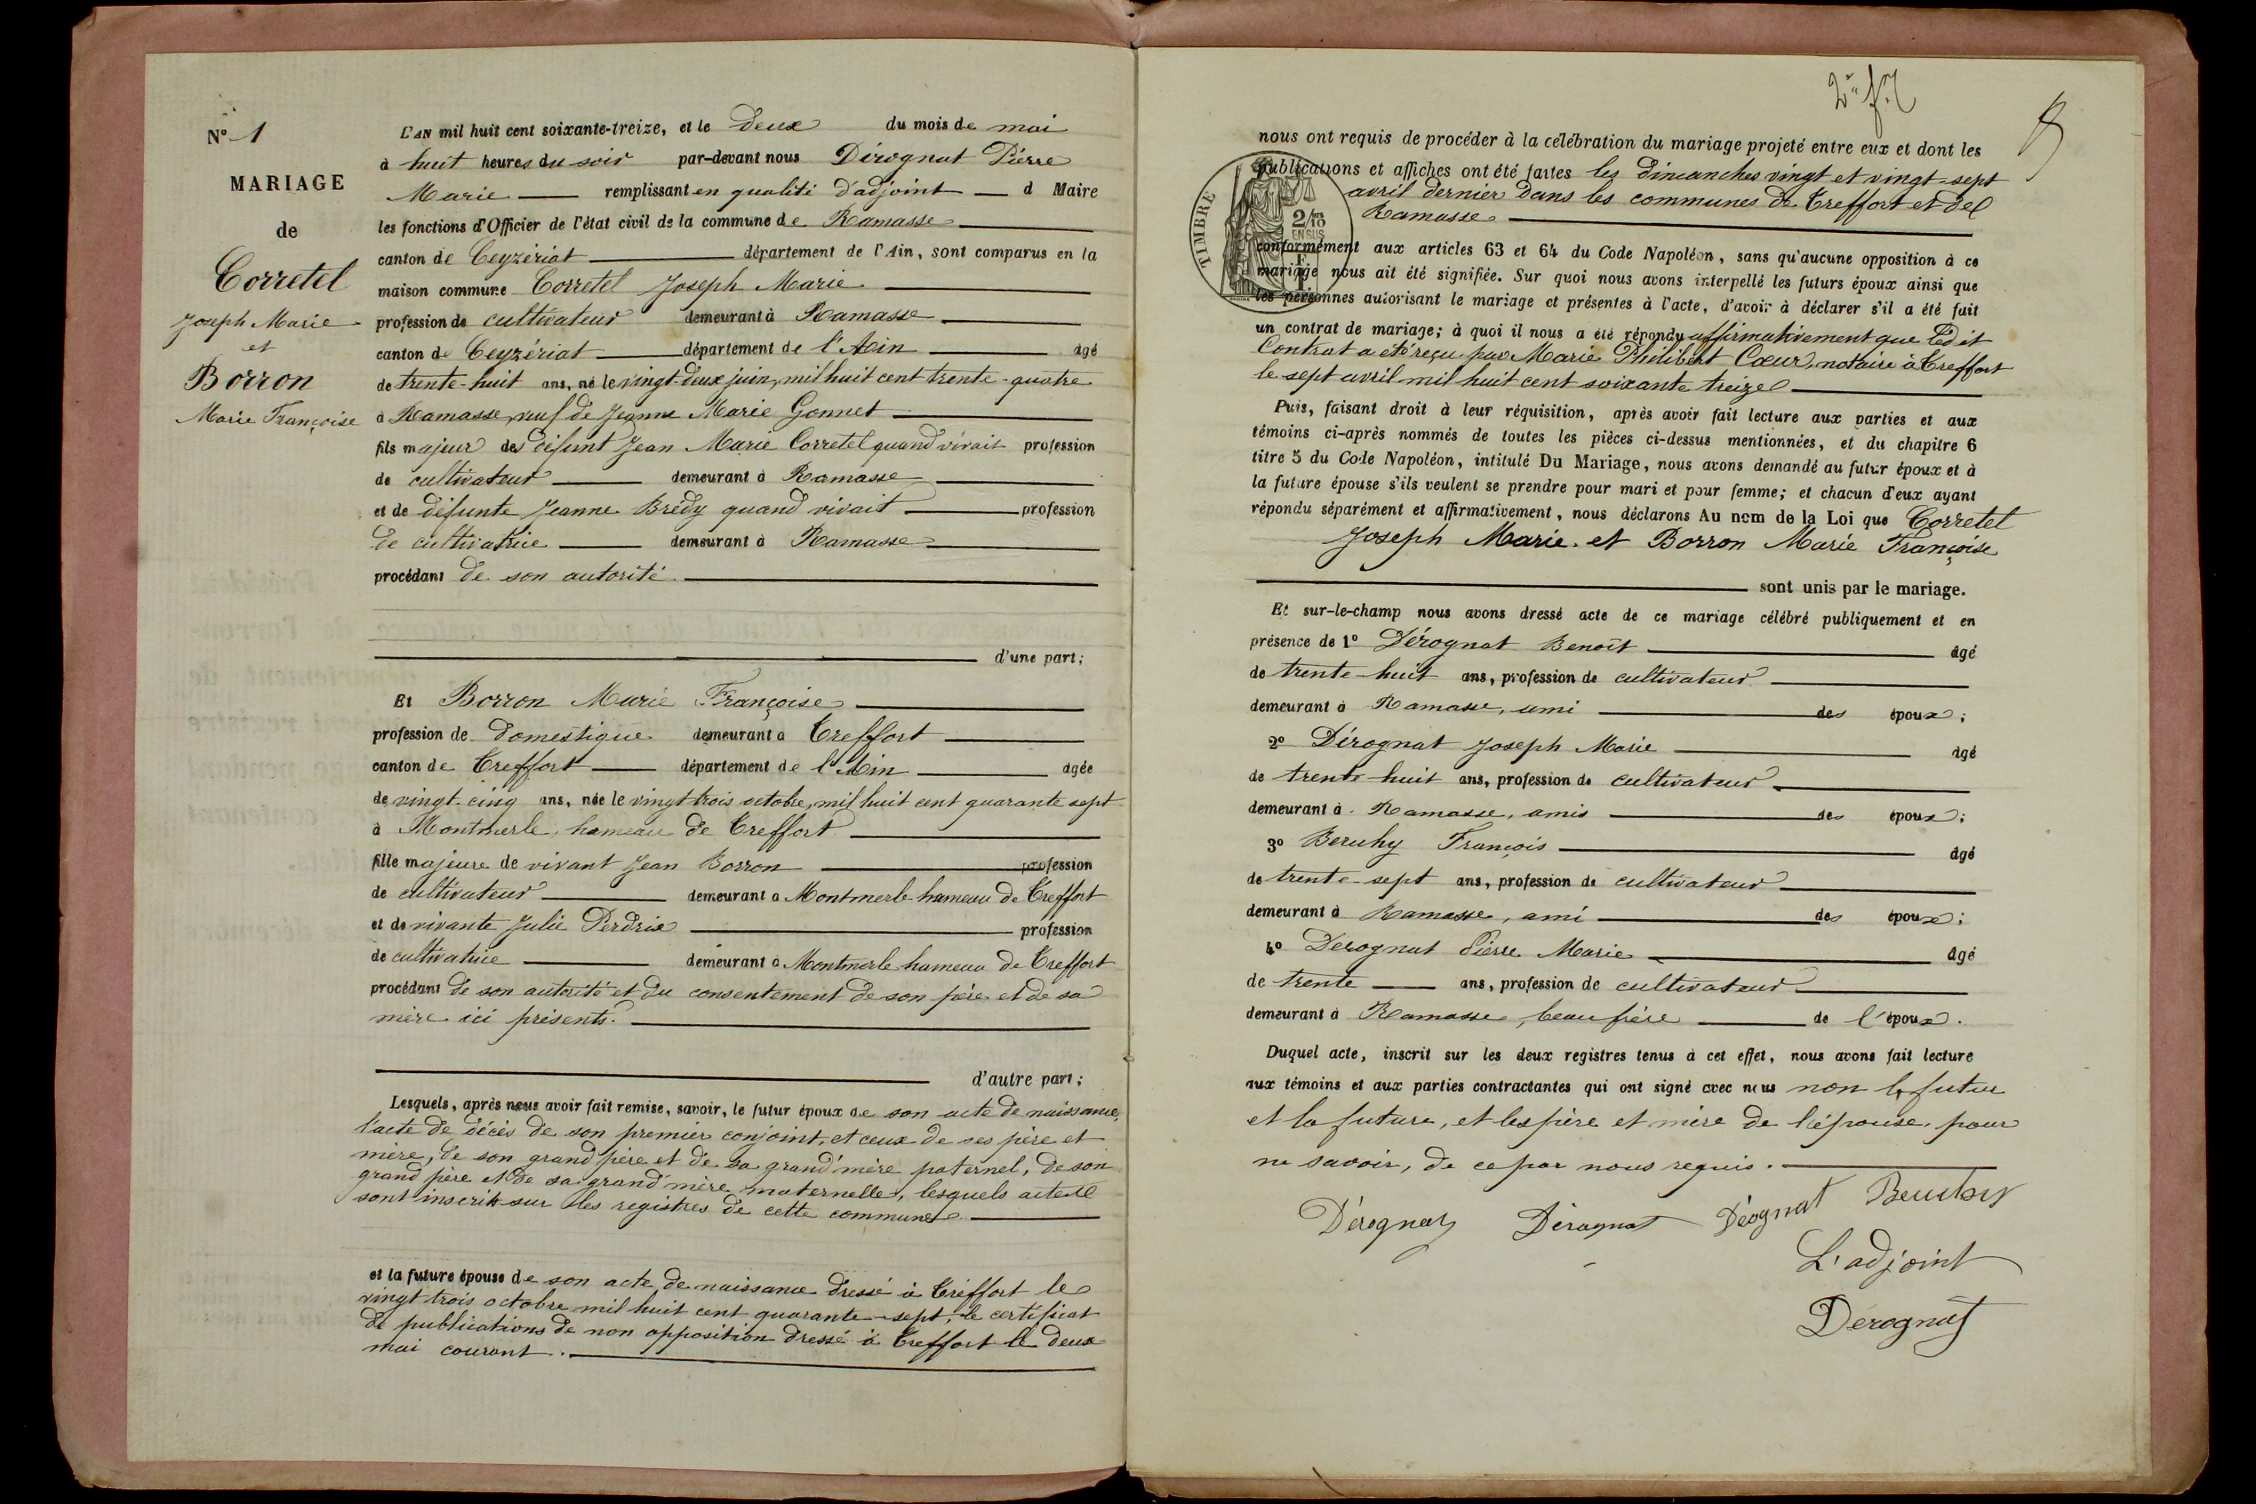 N° 1
MARIAGE
de
Corretel
Joseph Marie
et
Borron
Marie Françoise
L'AN mil huit cent soixante-treize, et le deux du mois de mai
à huit heures du soir par-devant nous Dérognat Pierre
Marie remplissant en qualité d'adjoint d Maire
les fonctions d'Officier de l'état civil de la commune de Ramasse
canton de Ceyzériat département de l'Ain, sont comparus en la
maison commune Corretel Joseph Marie
profession de cultivateur demeurant à Ramasse
canton de Ceyzériat département de l'Ain âgé
de trente-huit ans, né le vingt-deux juin, mil huit cent trente-quatre
à Ramasse, veuf de Jeanne Marie Gonnet
fils majeur de défunt Jean Marie Corretel quand vivait profession
de cultivateur demeurant à Ramasse
et de défunte Jeanne Brédy quand vivait profession
de cultivatrice demeurant à Ramasse
procédant de son autorité
d'une part;
Et Borron Marie Françoise
profession de domestique demeurant à Treffort
canton de Treffort département de l'Ain âgée
de vingt-cinq ans, née le vingt trois octobre, mil huit cent quarante sept
à Montmerle, hameau de Treffort
fille majeure de vivant Jean Borron profession
de cultivateur demeurant à Montmerle hameau de Treffort
et de vivante Julie Perdrix profession
de cultivatrice demeurant à Montmerle hameau de Treffort
procédant de son autorité et du consentement de son père et de sa
mère ici présents.
d'autre part;
Lesquels, après nous avoir fait remise, savoir, le futur époux de son acte de naissance,
l'acte de décès de son premier conjoint, et ceux de ses père et
mère, de son grand père et de sa grand'mère paternel, de son
grand père et de sa grand'mère maternelle, lesquels actes
sont inscrits sur les registres de cette commune
et la future épouse de son acte de naissance dressé à Treffort le
vingt trois octobre mil huit cent quarante-sept, le certificat
de publications de non opposition dressé à Treffort le deux
mai courant.
TIMBRE
2/10
EN SUS
nous ont requis de procéder à la célébration du mariage projeté entre eux et dont les
publications et affiches ont été faites les dimanches vingt et vingt-sept
avril dernier dans les communes de Treffort et de
Ramasse
conformément aux articles 63 et 64 du Code Napoléon, sans qu'aucune opposition à ce
mariage nous ait été signifiée. Sur quoi nous avons interpellé les futurs époux ainsi que
les personnes autorisant le mariage et présentes à l'acte, d'avoir à déclarer s'il a été fait
un contrat de mariage; à quoi il nous a été répondu affirmativement que ledit
Contrat a été reçu par Marie Philibert Cœur, notaire à Treffort
le sept avril mil huit cent soixante treize
Puis, faisant droit à leur réquisition, après avoir fait lecture aux parties et aux
témoins ci-après nommés de toutes les pièces ci-dessus mentionnées, et du chapitre 6
titre 5 du Code Napoléon, intitulé Du Mariage, nous avons demandé au futur époux et à
la future épouse s'ils veulent se prendre pour mari et pour femme; et chacun d'eux ayant
répondu séparément et affirmativement, nous déclarons Au nom de la Loi que Corretel
Joseph Marie et Borron Marie Françoise
sont unis par le mariage.
Et sur-le-champ nous avons dressé acte de ce mariage célébré publiquement et en
présence de 1° Dérognat Benoît âgé
de trente-huit ans, profession de cultivateur
demeurant à Ramasse, ami des époux;
2° Dérognat Joseph Marie âgé
de trente-huit ans, profession de cultivateur
demeurant à Ramasse, amis des époux;
3° Beruhy François âgé
de trente-sept ans, profession de cultivateur
demeurant à Ramasse, ami des époux;
4° Derognat Pierre Marie âgé
de trente ans, profession de cultivateur
demeurant à Ramasse, beau frère de l'époux.
Duquel acte, inscrit sur les deux registres tenus à cet effet, nous avons fait lecture
aux témoins et aux parties contractantes qui ont signé avec nous non le futur
et la future, et les père et mère de l'épouse, pour
ne savoir, de ce par nous requis.
Dérognat Dérognat Déognat
L'adjoint
Dérognat